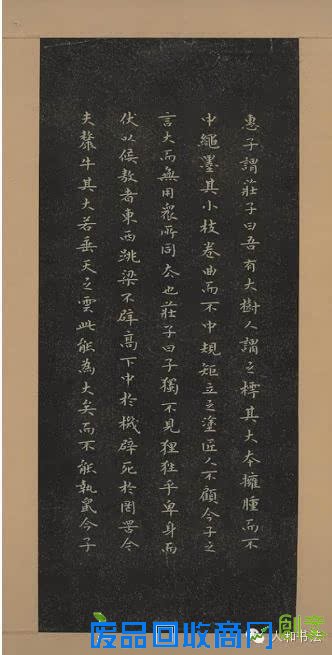 惠子謂莊子曰吾有大樹人謂之樗其大本擁腫而不
中繩墨其小枝卷曲而不中規矩立之塗匠人不顧今子之
言大而無用眾所同去也莊子曰子獨不見狸狌乎卑身而
伏以候敖者東西跳梁不辟高下中於機辟死於罔罟今
夫斄牛其大若垂天之雲此能為大矣而不能執鼠今子
人和书法
废品回收商网